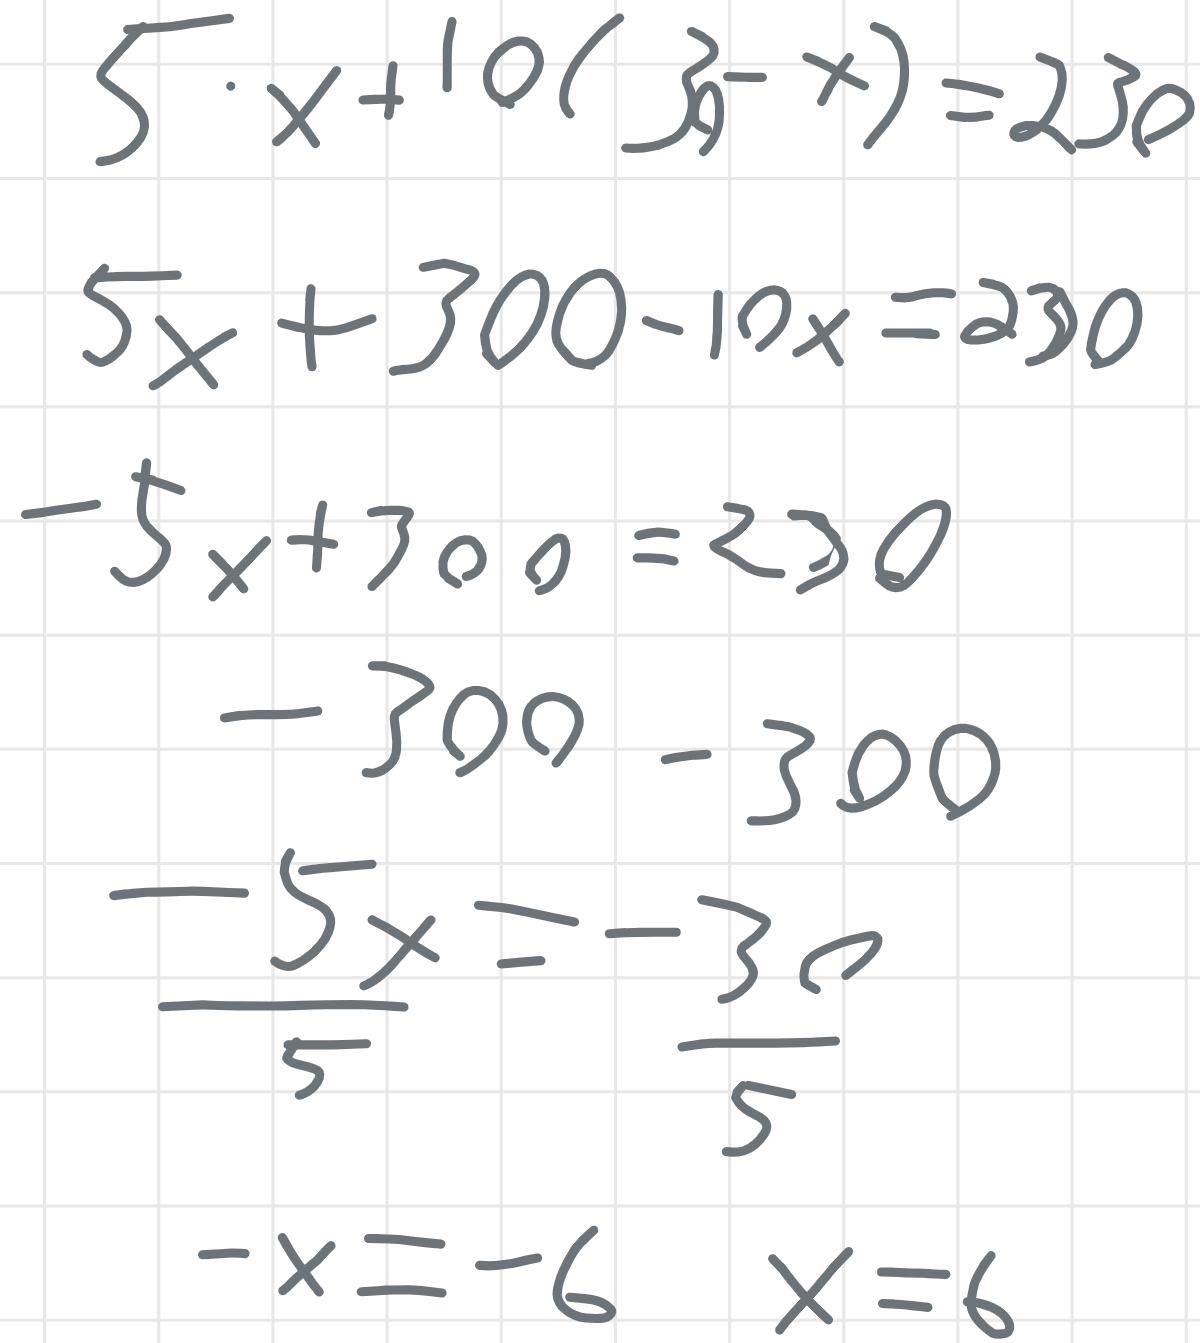 5 · x + 10(30 - x) = 230
5x + 300 - 10x = 230
-5x + 300 = 230
- 300 - 300
-5x = -30
5 5
-x = -6 x = 6